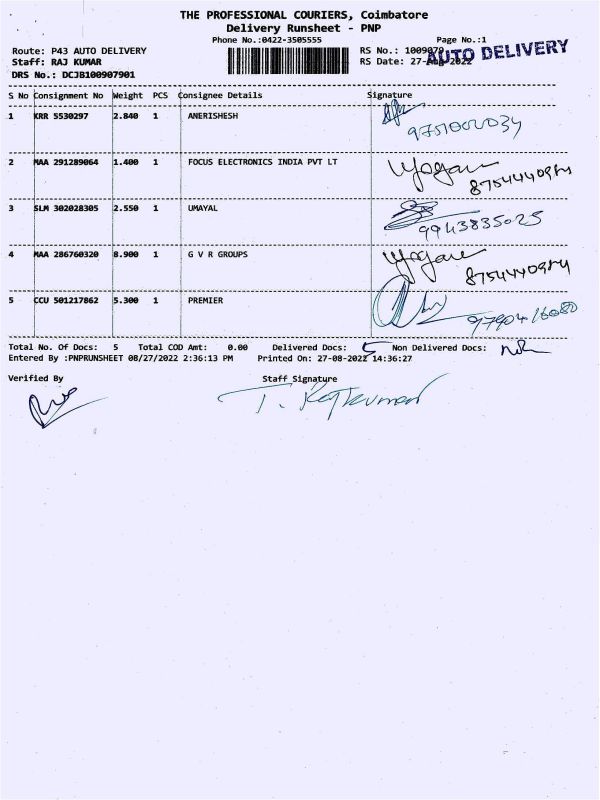 THE PROFESSIONAL COURIERS, Coimbatore
Delivery Runsheet - PNP
Phone No.:0422-3505555 Page No.:1
Route: P43 AUTO DELIVERY RS No.: 1009079
Staff: RAJ KUMAR RS Date: 27-Aug-2022
AUTO DELIVERY
DRS No.: DCJB100907901
S No Consignment No Weight PCS Consignee Details Signature
1 KRR 5530297 2.840 1 ANERISHESH
2 MAA 291289064 1.400 1 FOCUS ELECTRONICS INDIA PVT LT
3 SLM 302028305 2.550 1 UMAYAL
9943835025
4 MAA 286760320 8.900 1 G V R GROUPS
5 CCU 501217862 5.300 1 PREMIER
Total No. Of Docs: 5 Total COD Amt: 0.00 Delivered Docs: 5 Non Delivered Docs:
Entered By :PNPRUNSHEET 08/27/2022 2:36:13 PM Printed On: 27-08-2022 14:36:27
Verified By Staff Signature
T. Rajkumar